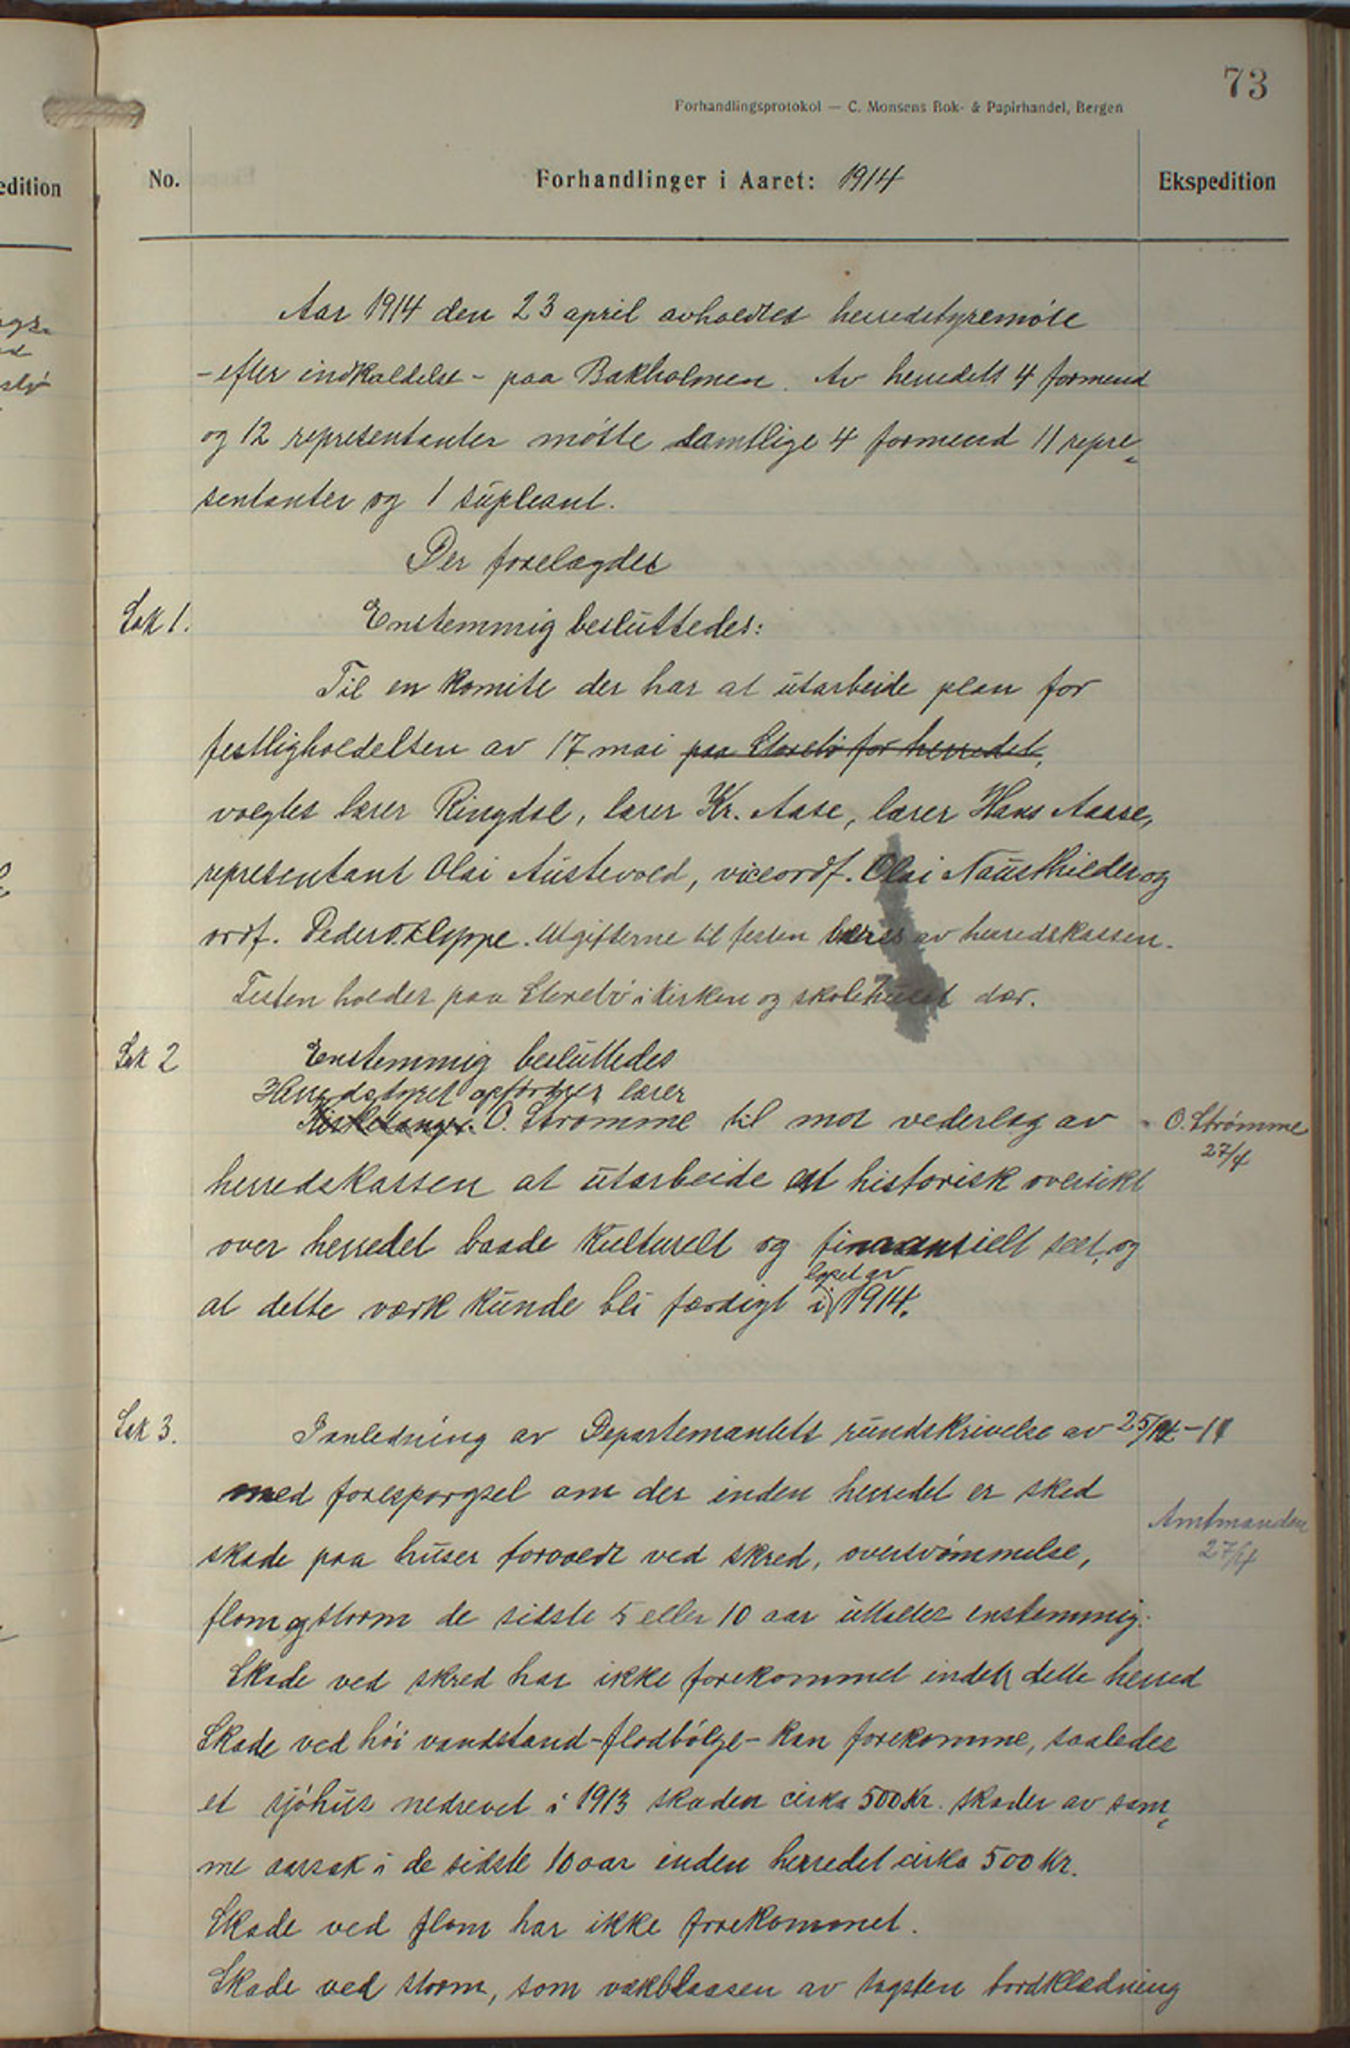 73
Forhandlingsprotokol — C. Monsens Bok- & Papirhandel, Bergen
edition
No.
Forhandlinger i Aaret: 1914
Ekspedition
Aar 1914 den 23 april avholdtes herredstyremöte
- efter indkaldelse - paa Bakholmen. Av herredets 4 formend
og 12 representanter mötte samtlige 4 formend 11 repre-
sentanter og 1 supleant.
Der forelagdes
Sak 1.
Enstemmig besluttedes:
Til en komite der har at utarbeide plan for
festligholdelsen av 17 mai paa Storebö for herredet,
valgtes lærer Ringdal, lærer Kr. Aase, lærer Hans Aaase,
representant Olai Austevold, viceordf. Olai Naustheller og
ordf. Peder O. Kleppe. Utgifterne til festen bæres av herredskassen.
Festen holdes paa Storebö i kirken og skolehuset der.
Sak 2
Enstemmig besluttedes
Herredsstyret opfordrer lærer
Kirkesanger O. Strømme til mot vederlag av
O. Strømme
27/4
herredskassen at utarbeide et historisk oversikt
over herredet baade kulturelt og finansielt seet, og
löpet av
at dette verk kunde bli færdigt i 1914.
Sak 3.
I anledning av Departemantets rundskrivelse av 25/
med forespørgsel om der inden herredet er sked
Amtmanden
27/4
skade paa huser forvoldt ved skred, oversvömmelse,
flom og storm de sidste 5 eller 10 aar uttales enstemmig:
Skade ved skred har ikke forekommet inden dette herred
Skade ved höi vandstand - flodbölge - kan forekomme, saaledes
et sjöhus nedrevet i 1913 skaden cirka 500 Kr. skader av sam-
me aarsak i de sidste 10 aar inden herredet cirka 500 Kr.
Skade ved flom har ikke forekommet.
Skade ved storm, som vækblaasen av tagsten bordklædning